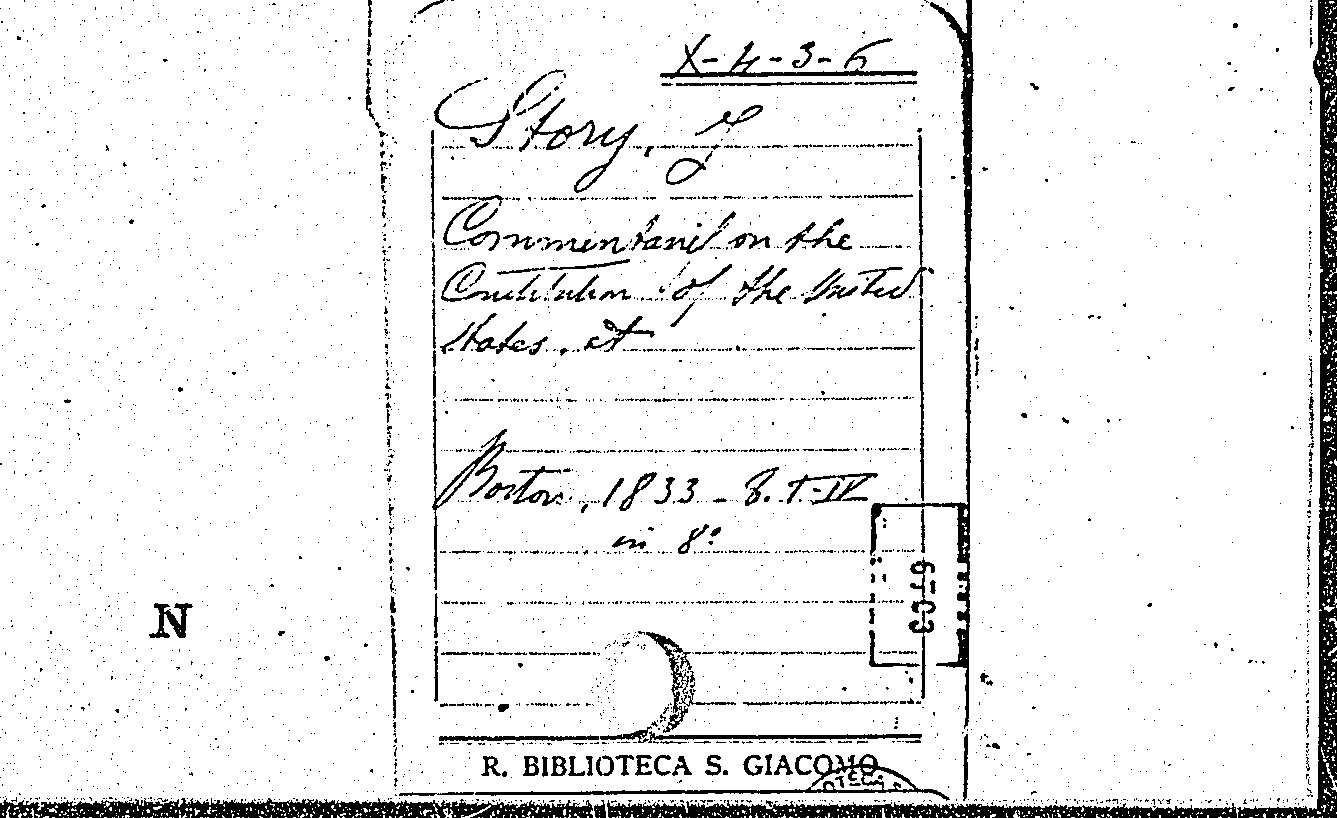 X-4-3-6
Story, J
Commentaries on the
Constitution of the United
States. et
Boston, 1833 - 8. T-IV
in 8º
N
R. BIBLIOTECA S. GIACOMO